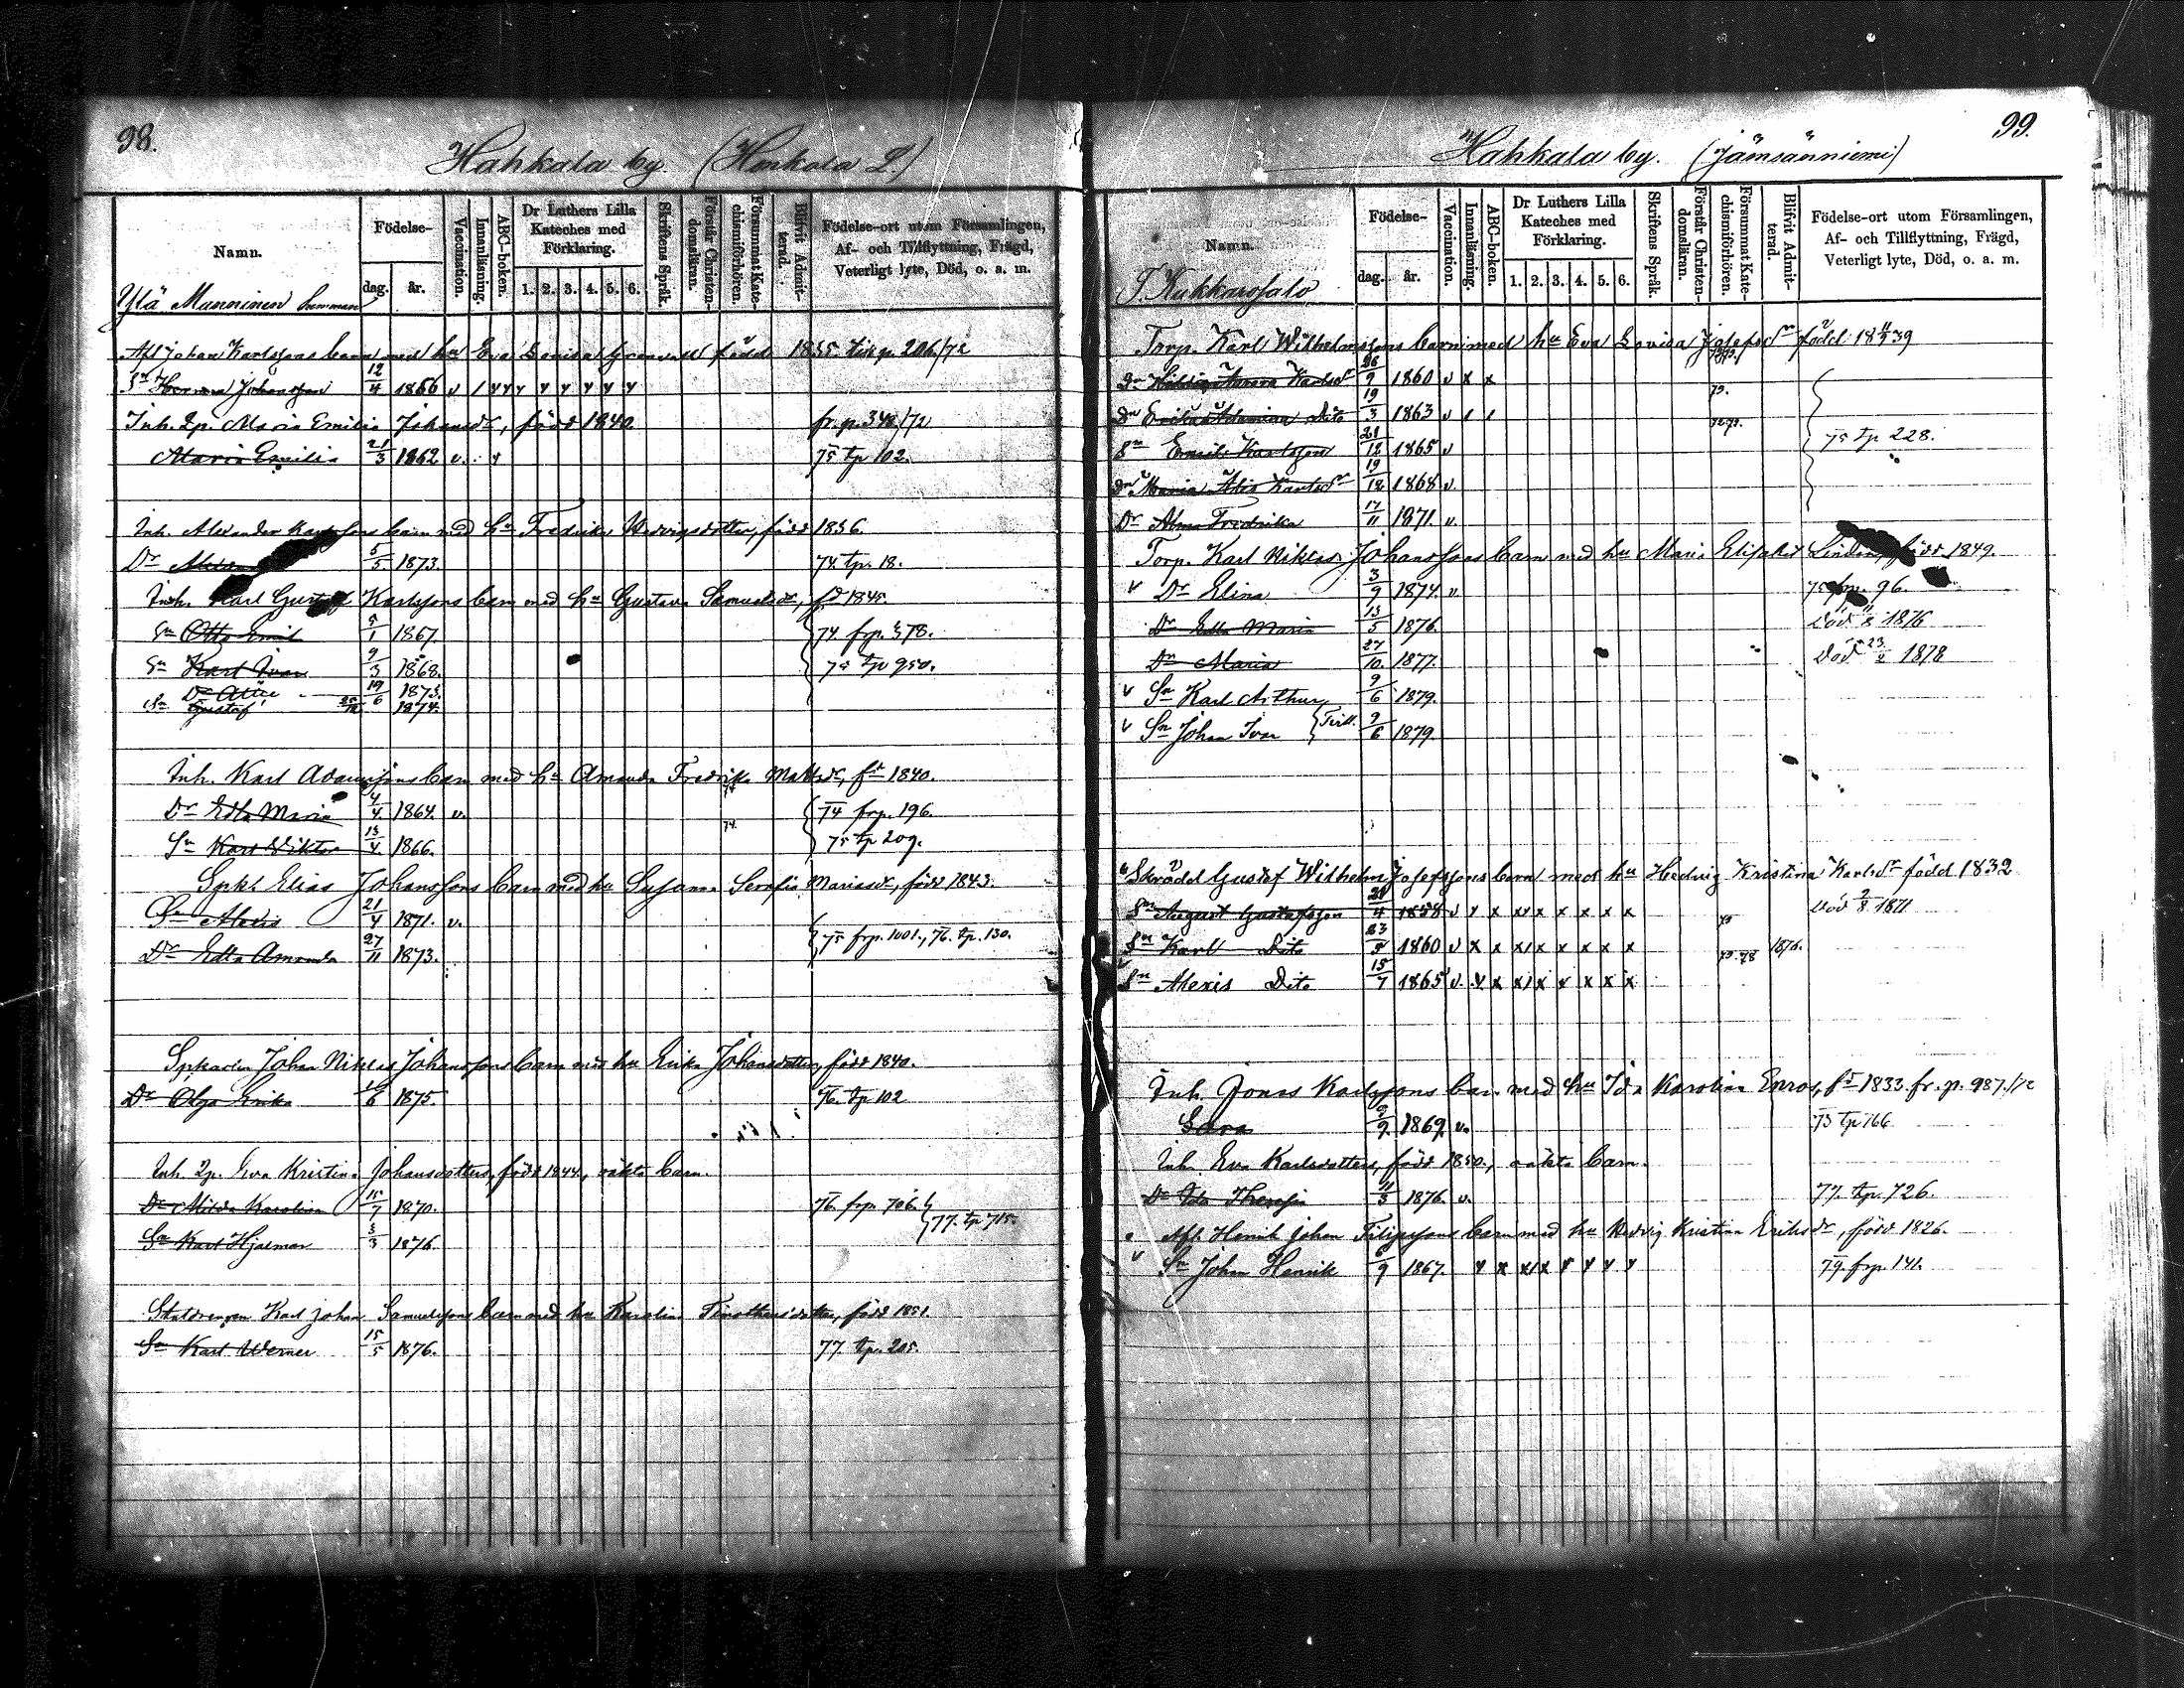 98.
Hahkala by. (Horkala L.)
Namn.
Födelse-
dag. år.
Vaccination.
Innanläsning.
ABC-boken.
Dr Luthers Lilla Kateches med Förklaring.
1. 2. 3. 4. 5. 6.
Skriftens Språk.
Förstår Christendomsläran.
Försummat Katechismiförhören.
Blifvit Admitterad.
Födelse-ort utom Församlingen, Af- och Tillflyttning, Frägd, Veterligt lyte, Död, o. a. m.
Ylä Munninen
Afl Johan Karlssons barn med hu Eva Lovisa född 1835 206/72
Sn Herman Johansson 12/4 1866 v
Inh. Qp. Maria Emilia Johansdr, född 1840 fr. p. 348/72
Maria Emilia 21/3 1862 v. 75 tp 102.
Inh. Alexander Karlssons barn med hu Fredrika Hedvigsdotter, född 1836
Dr 5/5 1873. 74. tp. 18.
Inh. Karl Gustaf Karlssons barn med hu Gustava Samuelsdr, fd 1845.
Sn Otto Emil 5/1 1867. 74. frp. 378.
Sn Karl Ivar 9/3 1868. 75 tp 950.
Dr Alice 19/6 1873.
Sn Gustaf 1874.
Inh. Karl Adamssons barn med hu Amanda Fredrika Mattsdr, fd 1840.
Dr Edla Maria 4/4 1864. v. 74 frp. 196.
Sn Karl Viktor 13/4 1866. 74. 75 tp 209.
Spkl Elias Johanssons barn med hu Susanna Serafia Mariasdr, född 1843.
Sn Alexis 21/4 1871. v.
Dr Edla Amanda 27/11 1873. 75 frp. 1001., 76. tp. 130.
Spkarlen Johan Niklas Johanssons barn med hu Erika Johansdotter, född 1840.
Dr Olga Erika 6 1875. 76. tp 102
Inh. Qp. Eva Kristina Johansdotters, född 1844, oäkta barn.
Dr Milda Karolina 15/7 1870. 76. frp. 706.
Sn Karl Hjalmar 3/3 1876. 77. tp 715.
Staldrengen Karl Johan Samuelssons barn med hu Karolina Timotheusdotter, född 1851.
Sn Karl Werner 15/5 1876. 77. tp. 205.
99.
Hahkala by. (Jämsänniemi)
Namn.
Födelse-
dag. år.
Vaccination.
Innanläsning.
ABC-boken.
Dr Luthers Lilla Kateches med Förklaring.
1. 2. 3. 4. 5. 6.
Skriftens Språk.
Förstår Christendomsläran.
Försummat Katechismiförhören.
Blifvit Admitterad.
Födelse-ort utom Församlingen, Af- och Tillflyttning, Frägd, Veterligt lyte, Död, o. a. m.
T. Kukkarosalo
Torp. Karl Wilhelmssons barn med hu Eva Lovisa Josefsdr född 1839
Dr Karlsdr 26/9 1860 v x x
Dr Dito 19/3 1863 v
Sn Emil Karlsson 21/12 1865 v 75 tp 228.
Dr Maria Karlsdr 19/12 1868 v.
Dr Alma Fredrika 17/11 1871. v.
Torp. Karl Niklas Johanssons barn med hu Maria Elisabet född 1849.
v Dr Elina 3/9 1874. v. 75 frp. 96.
Dr Edla Maria 13/5 1876. död 1876
Dr Maria 27/10 1877. död 23/2 1878
v Sn Karl Arthur 9/6 1879.
v Sn Johan Ivar Tvill. 9/6 1879.
Skrädd Gustaf Wilhelm Josefssons barn med hu Hedvig Kristina Karlsdr född 1832
Sn August Gustafsson 21/4 1858 v x x x x x x x x död 2/8 1871
Sn Karl Dito 23 1860 v x x x x x x x x 1876.
Sn Alexis Dito 15/7 1865 v. v. x x x x x x x
Inh. Jonas Karlssons barn med hu Ida Karolina Enros, fd 1833. fr. p. 987./72
Sara 9 1869. v. 73 tp 166
Inh. Eva Karlsdotters, född 1850., oäkta barn.
Dr Ida Theresia 11/3 1876. v. 77. tp. 726.
Afl. Henrik Johan Filipssons barn med hu Hedvig Kristina Eriksdr, född 1826.
v Sn Johan Henrik 9 1867. 79. frp. 141.